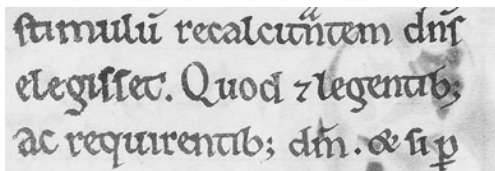 ſtimulū recalcitᷓntem dn̄ſ
elegiſſet. Quod ⁊ legentib;
ac requirentib; dm̄. & ſi ꝑ